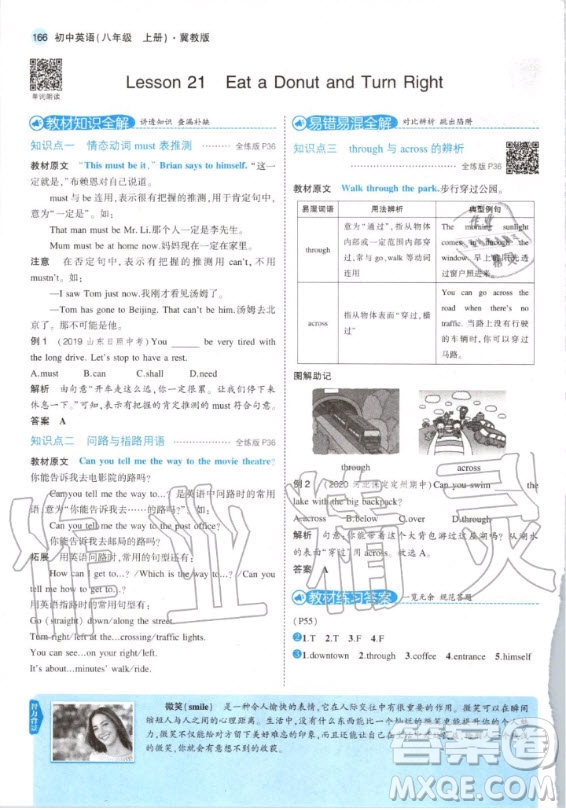 166 初中英语(八年级 上册)·冀教版
单词朗读
Lesson 21 Eat a Donut and Turn Right
教材知识全解 讲透知识 查漏补缺
知识点一 情态动词 must 表推测 全练版 P36
教材原文 "This must be it," Brian says to himself. "这一
定就是,"布赖恩对自己说道。
must 与 be 连用,表示很有把握的推测,用于肯定句中,
意为"一定是"。如:
That man must be Mr. Li.那个人一定是李先生。
Mum must be at home now.妈妈现在一定在家里。
注意 在否定句中,表示有把握的推测用 can't,不用
mustn't。如:
—I saw Tom just now.我刚才看见汤姆了。
—Tom has gone to Beijing. That can't be him.汤姆去北
京了。那不可能是他。
例 1 (2019 山东日照中考) You ______ be very tired with
the long drive. Let's stop to have a rest.
A.must B.can C.need D.shall
解析 由句意"开车走这么远,你一定很累。让我们停下来
休息一下。"可知,此题考查的是表推测的肯定推测的 must 符合句意。
答案 A
知识点二 问路与指路用语 全练版 P36
教材原文 Can you tell me the way to the movie theatre?
你能告诉我去电影院的路吗?
Can you tell me the way to...? 是英语中问路时的常用
语,意为"你能告诉我去……的路吗?"如:
Can you tell me the way to the post office?
你能告诉我去邮局的路吗?
拓展 用英语问路时,常用的句型还有:
How can I get to...? /Which is the way to...?
Where is...? /Is there a...near here?
用英语指路时的常用句型有:
Go (straight) down/along the street.
Turn right/left at the...crossing/traffic lights.
You can see...on your right/left.
It's about...minutes' walk/ride.
易错易混全解 对比辨析 跳出陷阱
知识点三 through 与 across 的辨析
全练版 P36
教材原文 Walk through the park.步行穿过公园。
易混词语 用法辨析 典型例句
through 意为"通过",指从物体内部或一定的空间内部穿过,常与 go、walk 等动词连用 The morning sunlight comes in through the window. 早上阳光透过窗户照进来。
across 指从物体表面"穿过,横过" You can go across the road when there's no traffic. 当路上没有行驶的车辆时,你们可以穿过马路。
图解助记
through across
例 2 (2020 河北保定定州期中) Can you swim ______ the
lake with the big backpack?
A.across B.below C.over D.through
解析 句意:你能带着这个大背包游过这座湖吗? 从湖水
的表面"穿过"用 across。故选 A。
答案 A
教材练习答案 一览无余 规范答题
(P55)
❷1.T 2.T 3.F 4.F
❸1.downtown 2.through 3.coffee 4.entrance 5.himself
智力背景
微笑(smile) 是一种令人愉快的表情,它在人际交往中有很重要的作用。微笑可以在瞬间
缩短人与人之间的心理距离。生活中,没有什么东西能比一个灿烂的微笑更能给人留下
难以忘怀的印象,而且还能让人与人之间
的微笑,我们都会有意想不到的收获。
作业精灵
答案圈
MXQE.COM